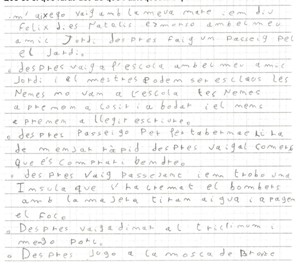 im' aixego vaig amb la meva mare iem diu
Felix d.es Natalis esmorce ambelmeu
amic Jordi despres faig un passeig pel
el Jardi.
. despres vaig a l'escola ambelmeu amic
Jordi i al mestres podem ser esclaos les
Nenes mo van a l'escola les Nenes
a prenen a cosir i a bodar i el nens
a prenen a llegir escriure.
. despres Passeigo Per
de menjar ràpid despres vaig al comerç
Que es compra i bendre.
. despres vaig passejant iem trobo una
Insula que s'ha cremat el bombers
amb la tiram aigua i apagem
el foc.
. Despres vaig a dinar al triclinium i
menjo
. Despres Jogo a la mosca de Bronce